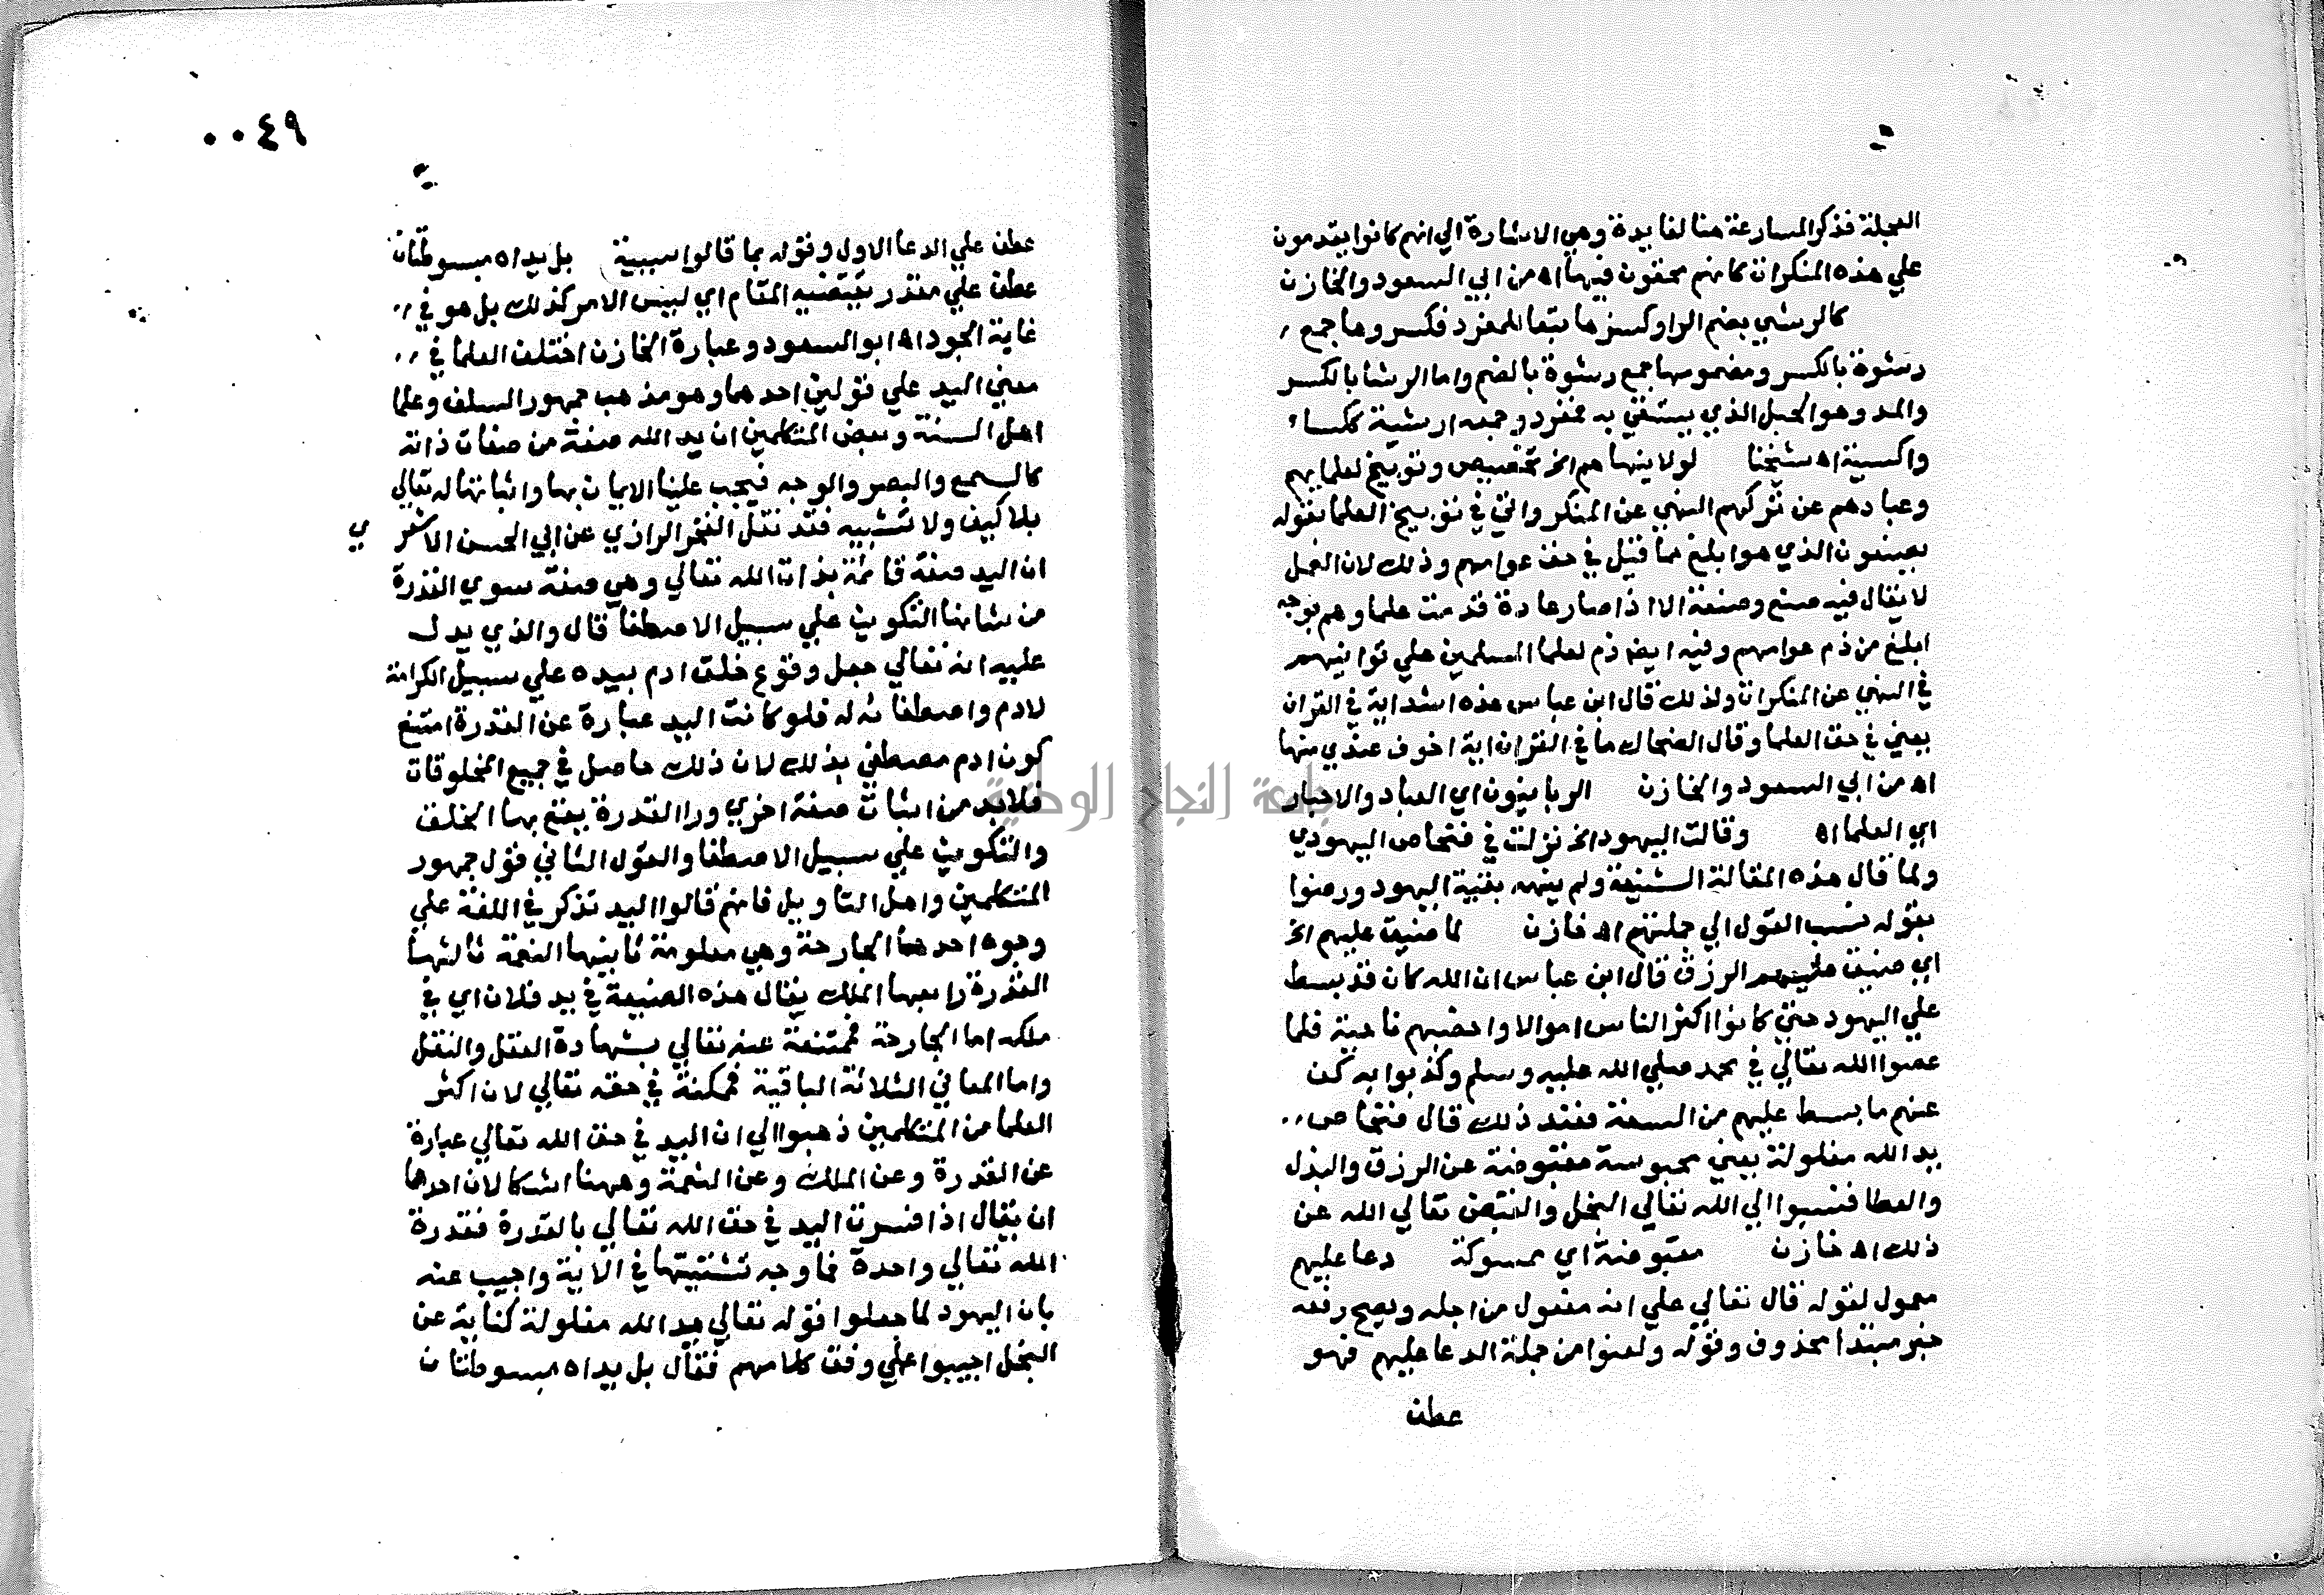 العجلة فذكر المسارعة هنا لفايدة وهي الاشارة الي انهم كانوا يقدمون
علي هذه المنكرات كانهم محقون فيها اه من ابي السعود والخازن
كالرشي بضم الرا وكسرها تبعا للمفرد فكسروها جمع
رشوة بالكسر ومضمومها جمع رشوة بالضم واما الرشا بالكسر
والمد وهو الحبل الذي يستقي به مفرد وجمعه ارشية ككساء
واكسية اه شيخنا لولا ينهاهم الخ تحضيض وتوبيخ لعلمايهم
وعبادهم عن تركهم النهي عن المنكر واتي في توبيخ العلما بقوله
يصنعون الذي هو ابلغ مما قيل في حق عوامهم وذلك لان العمل
لا يقال فيه صنع وصنعة الا اذا صار عادة قدمت علما وهم بوجه
ابلغ من ذم عوامهم وفيه ايضا ذم لعلما المسلمين علي توانيهم
في النهي عن المنكرات ولذلك قال ابن عباس هذه اشد اية في القران
يعني في حق العلما وقال الضحاك ما في القران اية اخوف عندي منها
اه من ابي السعود والخازن الربانيون اي العباد والاحبار
اي العلما اه وقالت اليهود الخ نزلت في فنحاص اليهودي
ولما قال هذه المقالة الشنيعة ولم ينهه بقية اليهود ورضوا
بقوله نسب القول الي جملتهم اه خازن لما ضيق عليهم الخ
اي ضيق عليهم الرزق قال ابن عباس ان الله كان قد بسط
علي اليهود حتي كانوا اكثر الناس اموالا واخصبهم ناحية فلما
عصوا الله تعالي في محمد صلي الله عليه وسلم وكذبوا به كف
عنهم ما بسط عليهم من السعة فعند ذلك قال فنحاص
يد الله مغلولة يعني محبوسة مقبوضة عن الرزق والبذل
والعطا فنسبوا الي الله تعالي البخل والقبض تعالي الله عن
ذلك اه خازن مقبوضة اي ممسوكة دعا عليهم
معمول لقوله قال تعالي علي انه مفعول من اجله ويصح رفعه
خبر مبتدا محذوف وقوله ولعنوا من جملة الدعا عليهم فهو
عطف
٠٠٤٩
عطف علي الدعا الاول وقوله بما قالوا سببية بل يداه مبسوطتان
عطف علي مقدر يقتضيه المقام اي ليس الامر كذلك بل هو في
غاية الجود اه ابو السعود وعبارة الخازن اختلف العلما في
معني اليد علي قولين احدهما وهو مذهب جمهور السلف وعلما
اهل السنة وبعض المتكلمين ان يد الله صفة من صفات ذاته
كالسمع والبصر والوجه فيجب علينا الايمان بها واثباتها له تعالي
بلا كيف ولا تشبيه فقد نقل الفخر الرازي عن ابي الحسن الاشعري
ان اليد صفة قائمة بذات الله تعالي وهي صفة سوي القدرة
من شانها التكوين علي سبيل الاصطفا قال والذي يدل
عليه انه تعالي جعل وقوع خلق ادم بيده علي سبيل الكرامة
لادم واصطفائه له فلو كانت اليد عبارة عن القدرة امتنع
كون ادم مصطفي بذلك لان ذلك حاصل في جميع المخلوقات
فلا بد من اثبات صفة اخري ورا القدرة يقع بها الخلق
والتكوين علي سبيل الاصطفا والقول الثاني قول جمهور
المتكلمين واهل التاويل فانهم قالوا اليد تذكر في اللغة علي
وجوه احدها الجارحة وهي معلومة ثانيها النعمة ثالثها
القدرة رابعها الملك يقال هذه الضيعة في يد فلان اي في
ملكه اما الجارحة فممتنعة عنه تعالي بشهادة العقل والنقل
واما المعاني الثلاثة الباقية فممكنة في حقه تعالي لان اكثر
العلما من المتكلمين ذهبوا الي ان اليد في حق الله تعالي عبارة
عن القدرة وعن الملك وعن النعمة وههنا اشكالان احدهما
ان يقال اذا فسرت اليد في حق الله تعالي بالقدرة فقدرة
الله تعالي واحدة فما وجه تثنيتها في الاية واجيب عنه
بان اليهود لما جعلوا قوله تعالي يد الله مغلولة كناية عن
البخل اجيبوا علي وفق كلامهم فقال بل يداه مبسوطتان
جامعة النجاح الوطنية